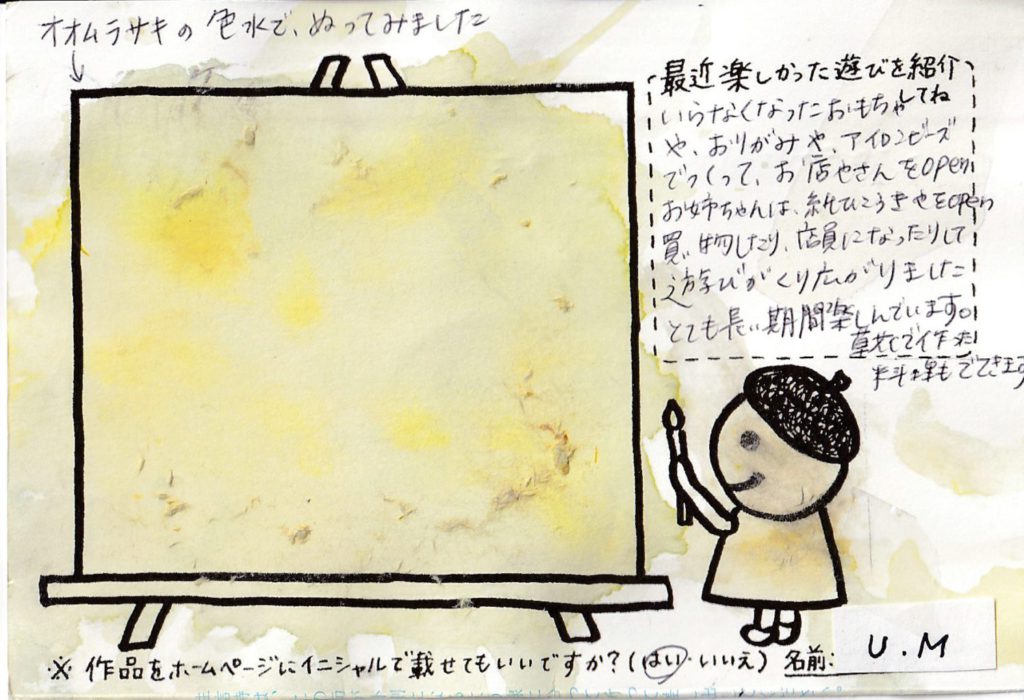 オオムラサキの色水で、ぬってみました
最近楽しかった遊びを紹介
してね
いらなくなったおもちゃ
や、おりがみや、アイロンビーズ
でつくって、お店やさんをopen
お姉ちゃんは、紙ひこうきやをopen
買い物したり、店員になったりして
遊びがくり広がりました
とても長い期間楽しんでいます。
草花で作った
料理もでてきます
※ 作品をホームページにイニシャルで載せてもいいですか?(はい・いいえ) 名前: U.M